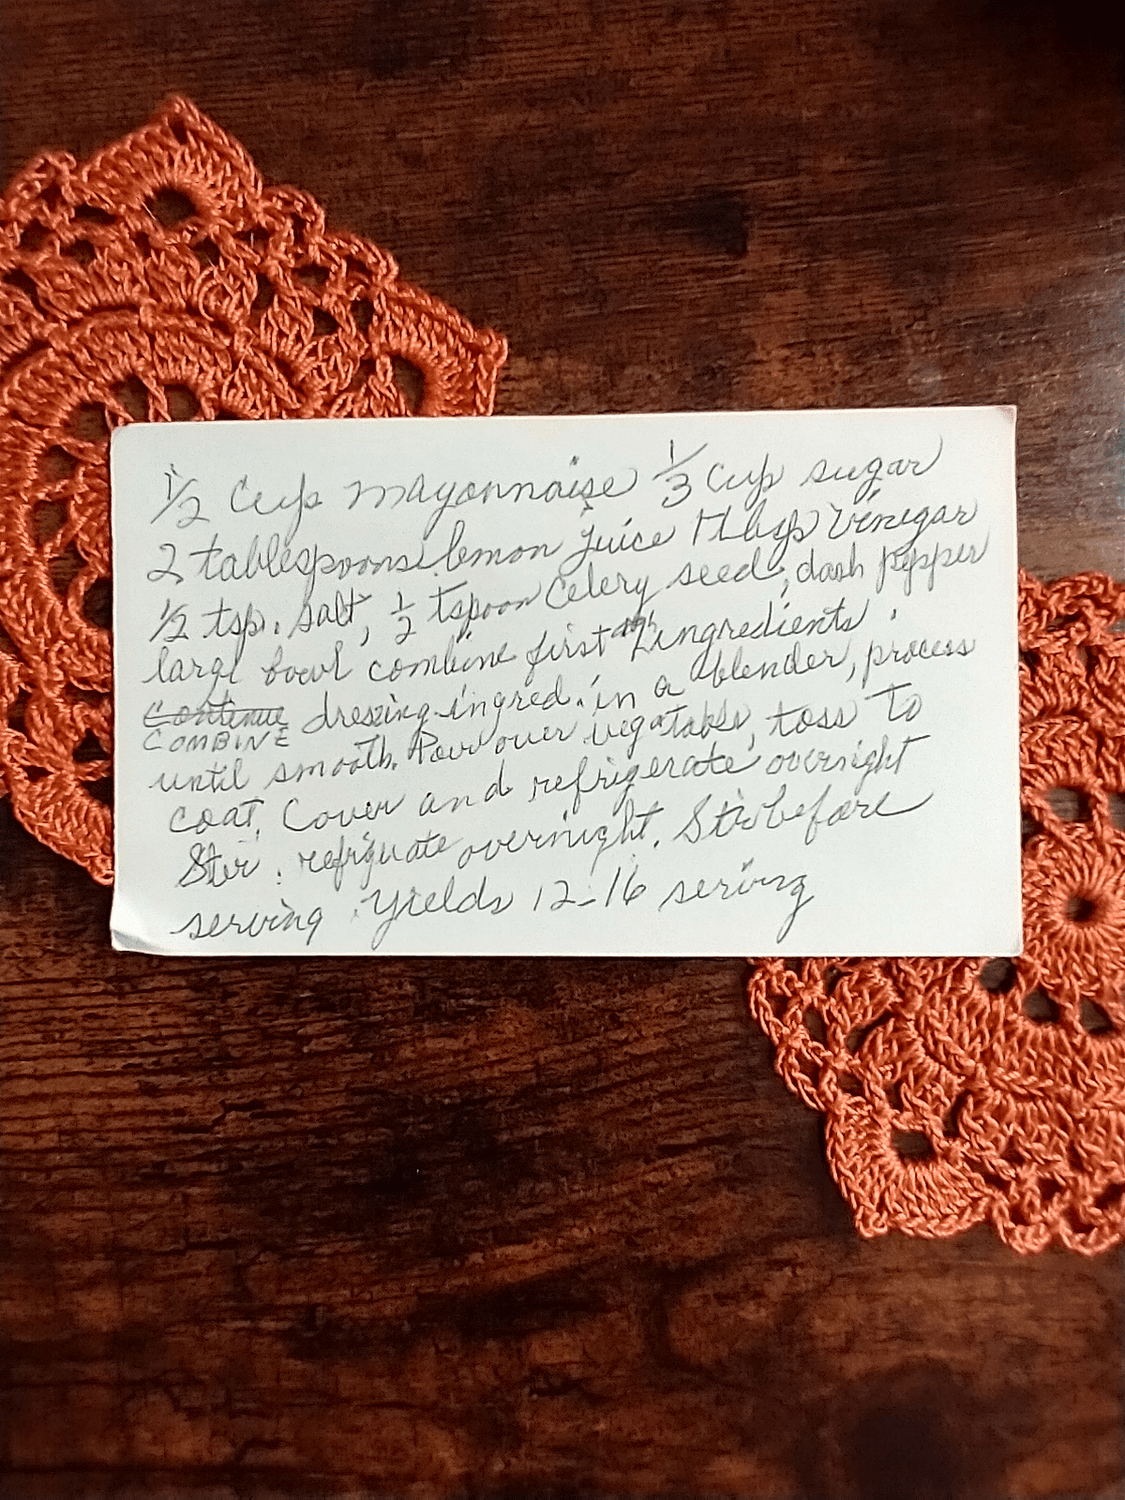 1/2 Cup mayonnaise 1/3 cup sugar
2 tablespoons lemon juice 1 Tbsp Vinegar
1/2 tsp. salt, 1/2 tspoon Celery seed, dash pepper
large bowl combine first ingredients.
Contenue dressing ingred. in a blender, process
COMBINE
until smooth. Pour over vegatables, toss to
coat. Cover and refrigerate overnight
Stir. refriguate overnight. Stir before
serving. Yields 12-16 serving